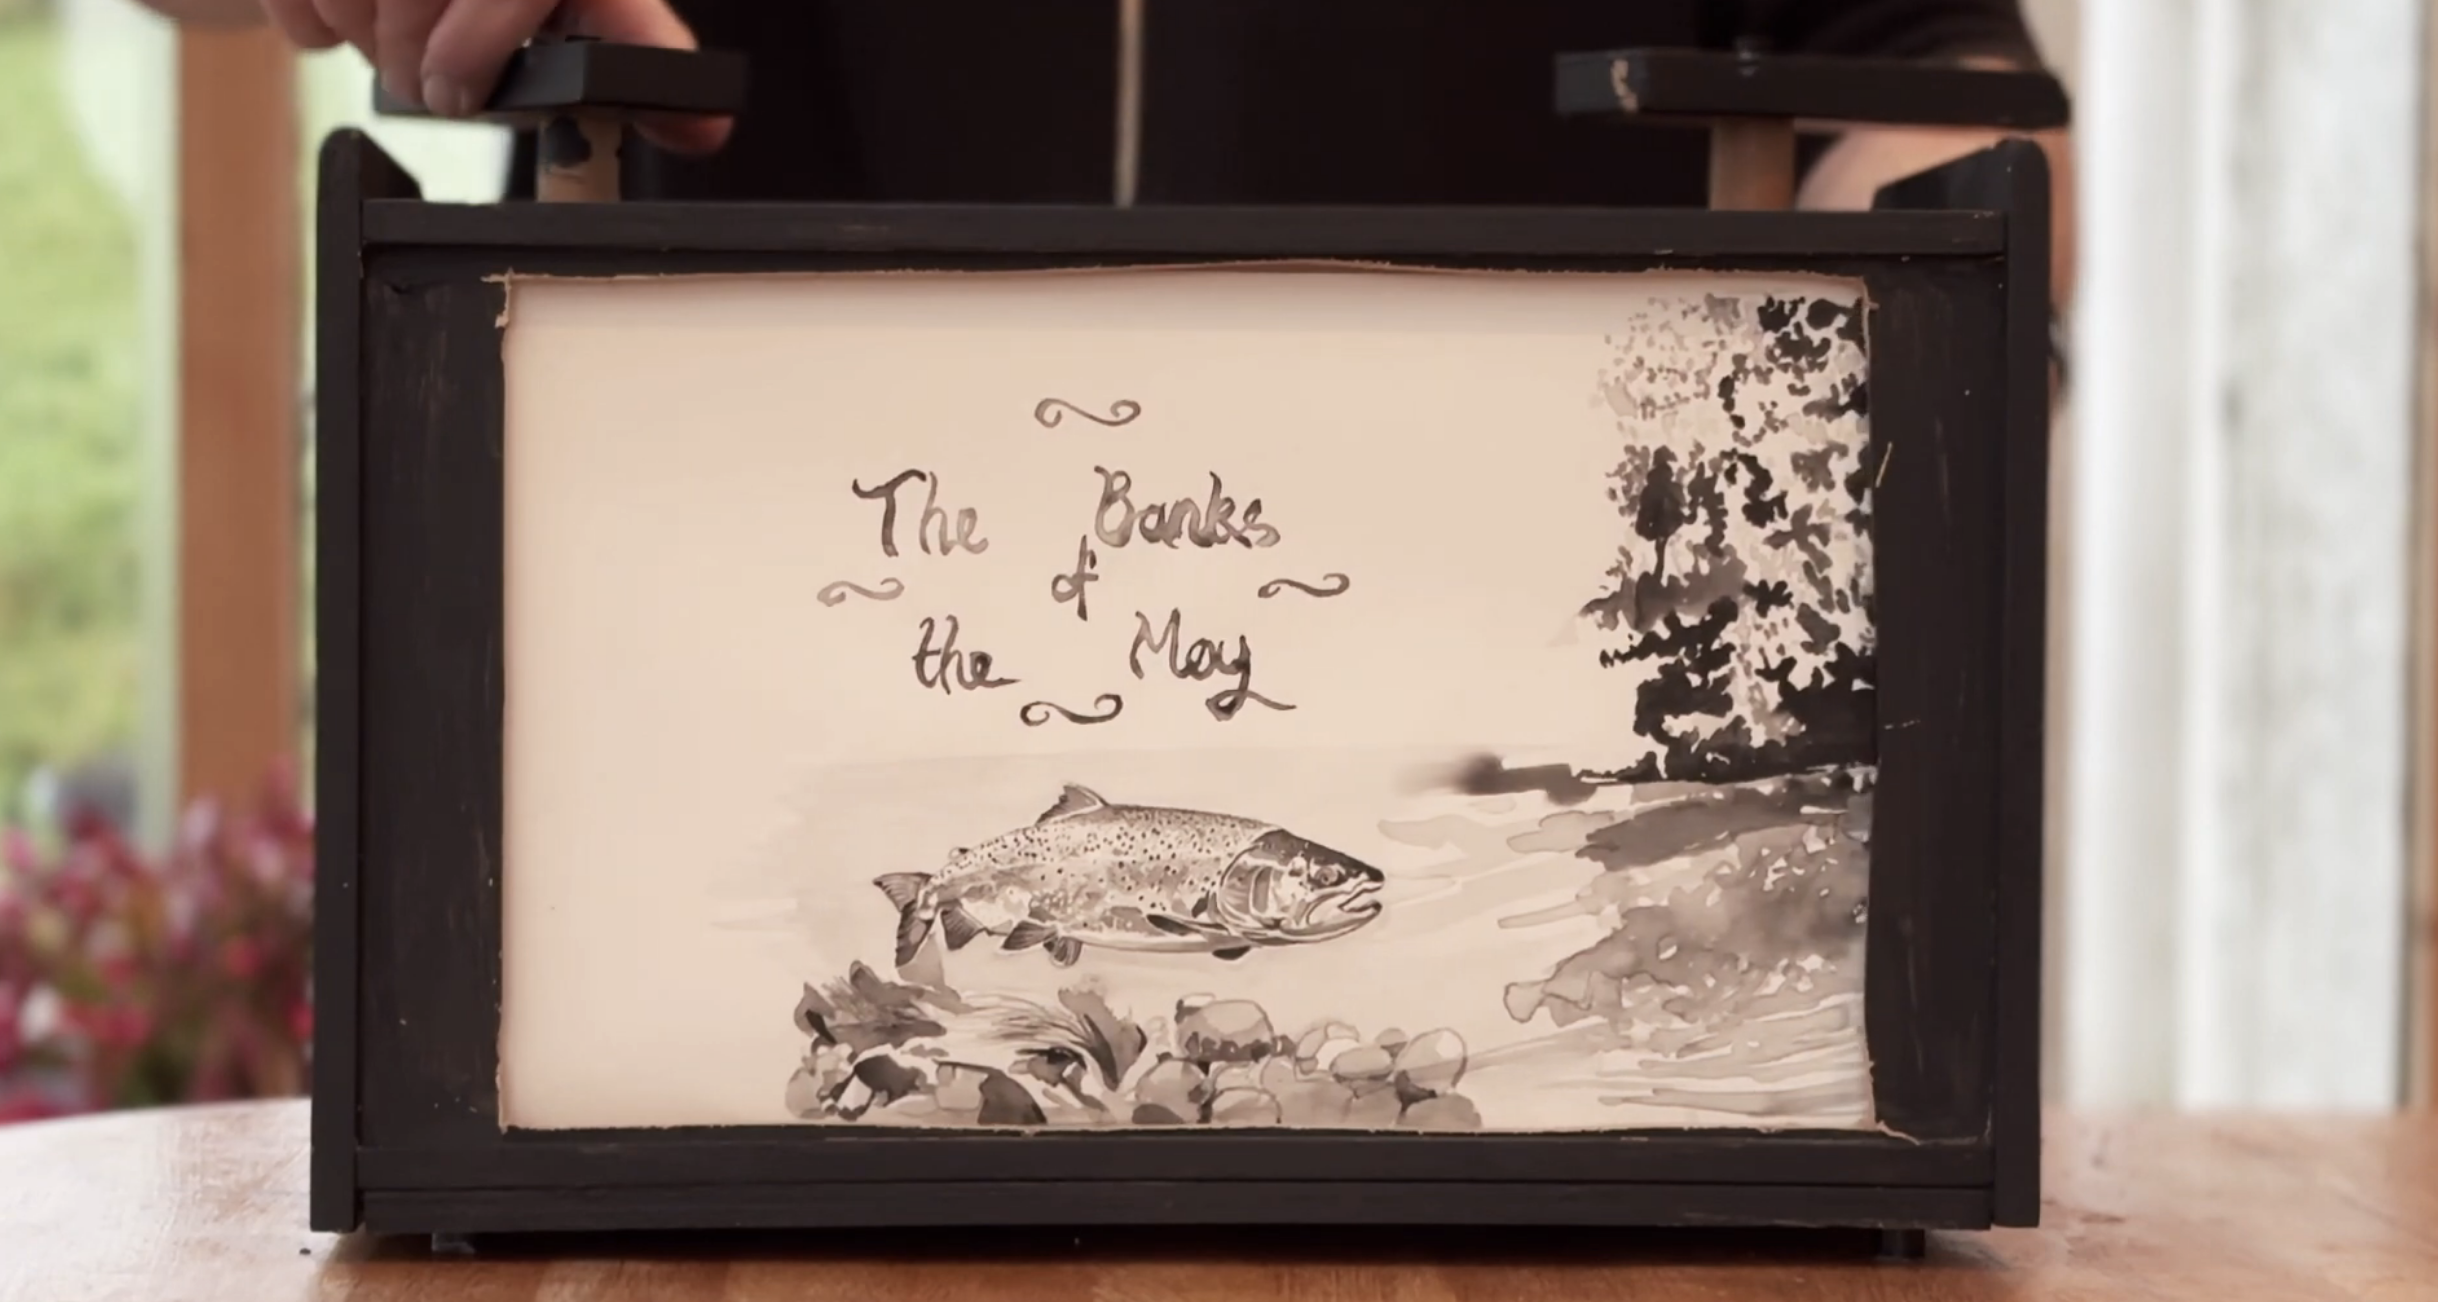 The Banks
of
the Moy